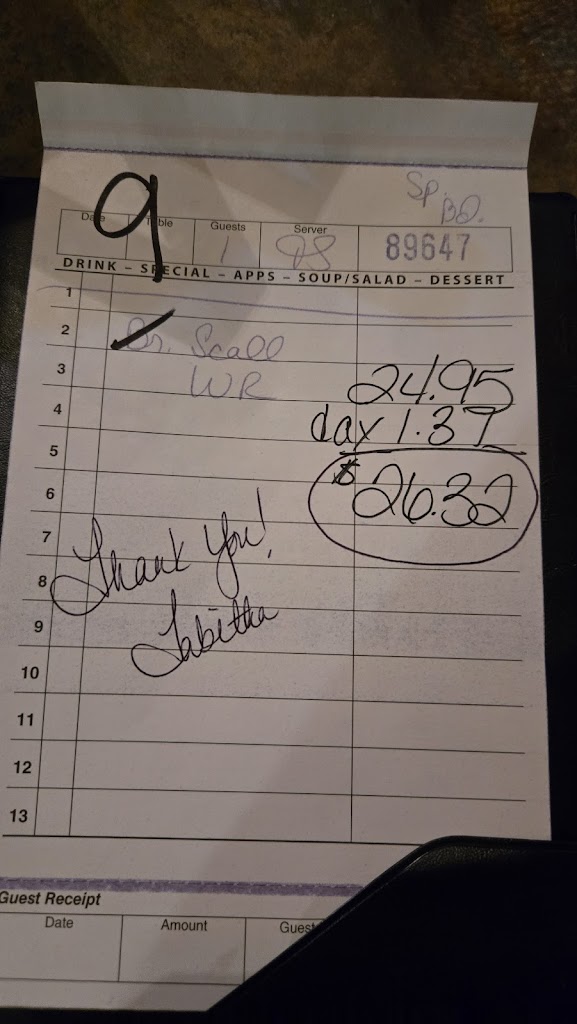 9
Sp.
BD.
Date Table Guests Server
1 89647
DRINK – SPECIAL – APPS – SOUP/SALAD – DESSERT
1
2 Br. Scall
3 WR 24.95
4 day 1.37
5
6 $26.32
7 Thank You!
8
9 Tabitha
10
11
12
13
Guest Receipt
Date Amount